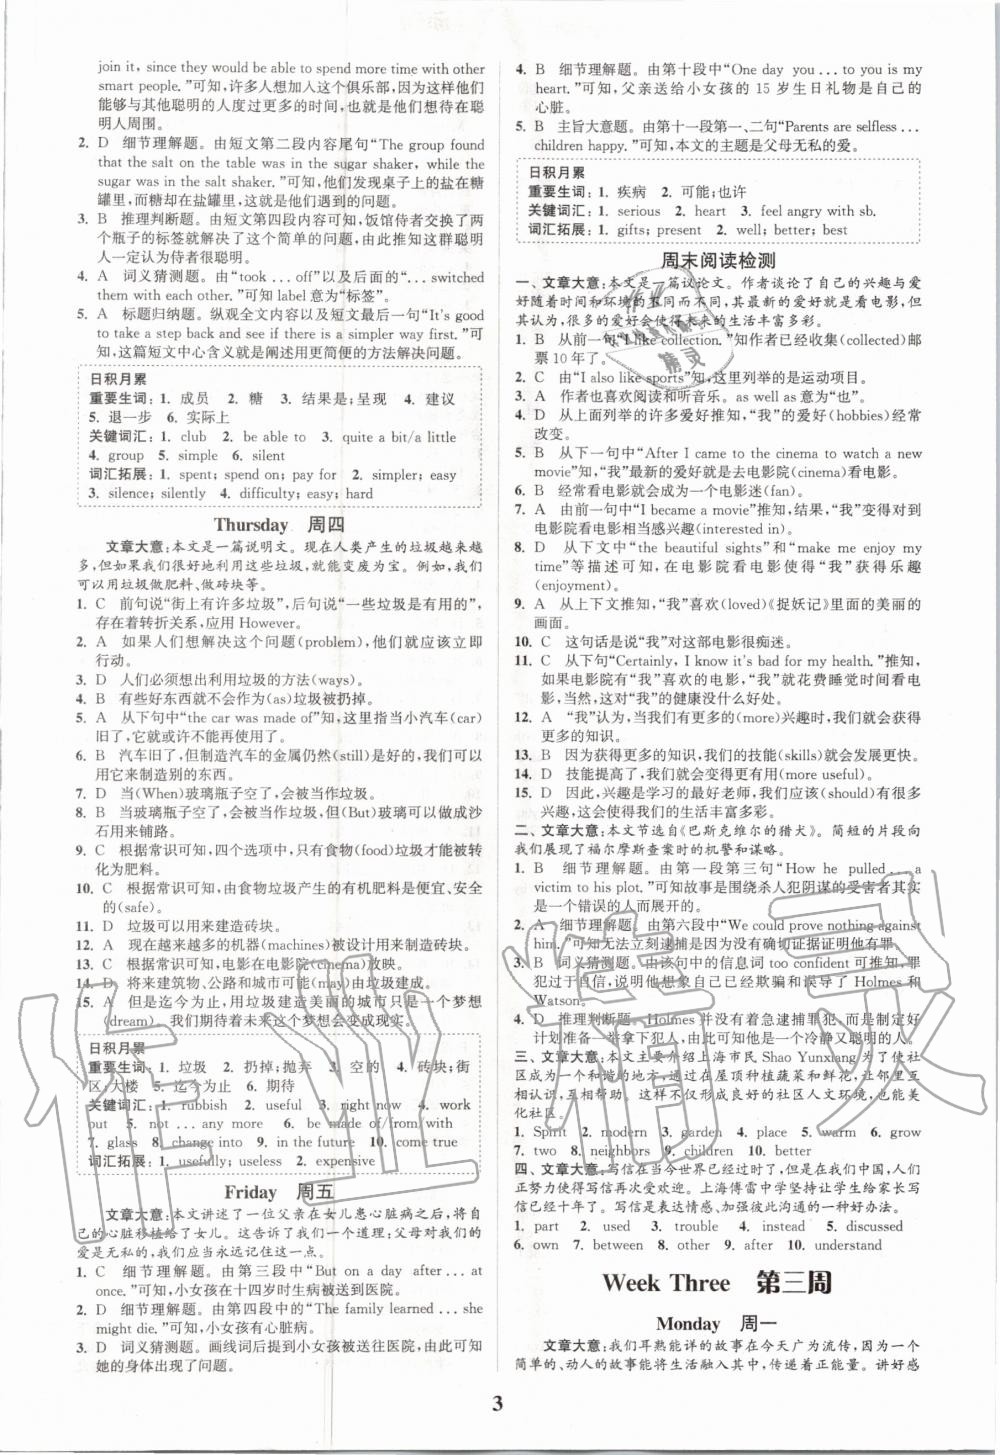 join it, since they would be able to spend more time with other
smart people.”可知，许多人想加入这个俱乐部，因为这样他们
能够与其他聪明的人度过更多的时间，也就是他们想待在聪
明人周围。
2. D 细节理解题。由短文第二段内容尾句“The group found
that the salt on the table was in the sugar shaker, while the
sugar was in the salt shaker.”可知，他们发现桌子上的盐在糖
罐里，而糖却在盐罐里，这就是他们遇到的问题。
3. B 推理判断题。由短文第四段内容可知，饭馆侍者交换了两
个瓶子的标签就解决了这个简单的问题，由此推知这群聪明
人一定认为侍者很聪明。
4. A 词义猜测题。由“took ... off”以及后面的“... switched
them with each other.”可知 label意为“标签”。
5. A 标题归纳题。纵观全文内容以及短文最后一句“It's good
to take a step back and see if there is a simpler way first.”可
知，这篇短文中心含义就是阐述用更简便的方法解决问题。
日积月累
重要生词：1. 成员 2. 糖 3. 结果是；呈现 4. 建议
5. 退一步 6. 实际上
关键词汇：1. club 2. be able to 3. quite a bit/a little
4. group 5. simple 6. silent
词汇拓展：1. spent; spend on; pay for 2. simpler; easy
3. silence; silently 4. difficulty; easy; hard
Thursday 周四
文章大意：本文是一篇说明文。现在人类产生的垃圾越来越
多，但如果我们很好地利用这些垃圾，就能变废为宝。例如，我们
可以用垃圾做肥料、做砖块等。
1. C 前句说“街上有许多垃圾”，后句说“一些垃圾是有用的”，
存在着转折关系，应用 However。
2. A 如果人们想解决这个问题(problem)，他们就应该立即
行动。
3. D 人们必须想出利用垃圾的方法(ways)。
4. B 有些好东西就不会作为(as)垃圾被扔掉。
5. A 从下句中“the car was made of”知，这里指当小汽车(car)
旧了，它就或许不能再使用了。
6. B 汽车旧了，但制造汽车的金属仍然(still)是好的，我们可以
用它来制造别的东西。
7. D 当(When)玻璃瓶子空了，会被当作垃圾。
8. B 当玻璃瓶子空了，会被当作垃圾，但(But)玻璃可以做成沙
石用来铺路。
9. C 根据常识可知，四个选项中，只有食物(food)垃圾才能被转
化为肥料。
10. C 根据常识可知，由食物垃圾产生的有机肥料是便宜、安全
的(safe)。
11. D 垃圾可以用来建造砖块。
12. A 现在越来越多的机器(machines)被设计用来制造砖块。
13. C 根据常识可知，电影在电影院(cinema)放映。
14. D 将来建筑物、公路和城市可能(may)由垃圾建成。
15. A 但是迄今为止，用垃圾建造美丽的城市只是一个梦想
(dream)，我们期待着未来这个梦想会变成现实。
日积月累
重要生词：1. 垃圾 2. 扔掉；抛弃 3. 空的 4. 砖块；街
区；大楼 5. 迄今为止 6. 期待
关键词汇：1. rubbish 2. useful 3. right now 4. work
out 5. not ... any more 6. be made of/from/with
7. glass 8. change into 9. in the future 10. come true
词汇拓展：1. usefully; useless 2. expensive
Friday 周五
文章大意：本文讲述了一位父亲在女儿患心脏病之后，将自
己的心脏移植给了女儿。这告诉了我们一个道理：父母对我们的
爱是无私的，我们应当永远记住这一点。
1. C 细节理解题。由第三段中“But on a day after ... at
once.”可知，小女孩在十四岁时生病被送到医院。
2. D 细节理解题。由第四段中的“The family learned ... she
might die.”可知，小女孩有心脏病。
3. D 词义猜测题。画线词后提到小女孩被送往医院，由此可知
她的身体出现了问题。
4. B 细节理解题。由第十段中“One day you ... to you is my
heart.”可知，父亲送给小女孩的15岁生日礼物是自己的
心脏。
5. B 主旨大意题。由第十一段第一、二句“Parents are selfless ...
children happy.”可知，本文的主题是父母无私的爱。
日积月累
重要生词：1. 疾病 2. 可能；也许
关键词汇：1. serious 2. heart 3. feel angry with sb.
词汇拓展：1. gifts; present 2. well; better; best
周末阅读检测
一、文章大意：本文是一篇议论文。作者谈论了自己的兴趣与爱
好随着时间和环境的不同而不同，其最新的爱好就是看电影，但
我认为，很多的爱好会使得未来的生活丰富多彩。
1. B 从前一句“I like collection.”知作者已经收集(collected)邮
票10年了。
2. C 由“I also like sports”知，这里列举的是运动项目。
3. A 作者也喜欢阅读和听音乐。as well as意为“也”。
4. D 从上面列举的许多爱好推知，“我”的爱好(hobbies)经常
改变。
5. B 从下一句中“After I came to the cinema to watch a new
movie”知，“我”最新的爱好就是去电影院(cinema)看电影。
6. B 经常看电影就会成为一个电影迷(fan)。
7. A 由前一句中“I became a movie”推知，结果，“我”变得对到
电影院看电影相当感兴趣(interested in)。
8. D 从下文中“the beautiful sights”和“make me enjoy my
time”等描述可知，在电影院看电影使“我”获得乐趣
(enjoyment)。
9. A 从上下文推知，“我”喜欢(loved)《捉妖记》里面的美丽的
画面。
10. C 这句话是说“我”对这部电影很痴迷。
11. C 从下句“Certainly, I know it's bad for my health.”推知，
如果电影院有“我”喜欢的电影，“我”就花费睡觉时间看电
影，当然，这对“我”的健康没什么好处。
12. A “我”认为，当我们有更多的(more)兴趣时，我们就会获得
更多的知识。
13. B 因为获得更多的知识，我们的技能(skills)就会发展更快。
14. D 技能提高了，我们就会变得更加有用(more useful)。
15. D 因此，兴趣是学习的最好老师，我们应该(should)有很多
兴趣，这会使得我们的生活丰富多彩。
二、文章大意：本文节选自《巴斯克维尔的猎犬》。简短的片段向
我们展现了福尔摩斯查案时的机警和谋略。
1. B 细节理解题。由第一段第三句“How he pulled ... a
victim to his plot.”可知故事是围绕杀人犯阴谋的受害者其实
是一个错误的人而展开的。
2. A 细节理解题。由第六段中“We could prove nothing against
him.”可知无法立刻逮捕是因为没有确切证据证明他有罪。
3. B 词义猜测题。由该句中的信息词 too confident可推知，罪
犯过于自信，说明他以为自己已经欺骗和误导了 Holmes和
Watson。
4. D 推理判断题。Holmes并没有着急逮捕罪犯，而是制定好
计划准备一举拿下犯人，由此可知他是一个冷静又聪明的人。
三、文章大意：本文主要介绍上海市民 Shao Yunxiang为了使社
区成为一个和谐的地方，通过在屋顶种植蔬菜和鲜花，让邻里分
享，互相帮助。这样不仅形成良好的社区人文环境，也能美
化社区。
1. Spirit 2. modern 3. garden 4. place 5. warm 6. grow
7. two 8. neighbors 9. children 10. better
四、文章大意：写信在当今世界已经过时了，但是在中国，人们
正努力使得写信再次受欢迎。上海傅雷中学坚持让学生给家长写
信已经十年了。写信是表达情感、加强彼此沟通的一种好办法。
1. part 2. used 3. trouble 4. instead 5. discussed
6. own 7. between 8. other 9. after 10. understand
Week Three 第三周
Monday 周一
文章大意：我们耳熟能详的故事在今天广为流传，因为一个
简单的、动人的故事能将生活融入其中，传递着正能量。讲好感
3
作业精灵